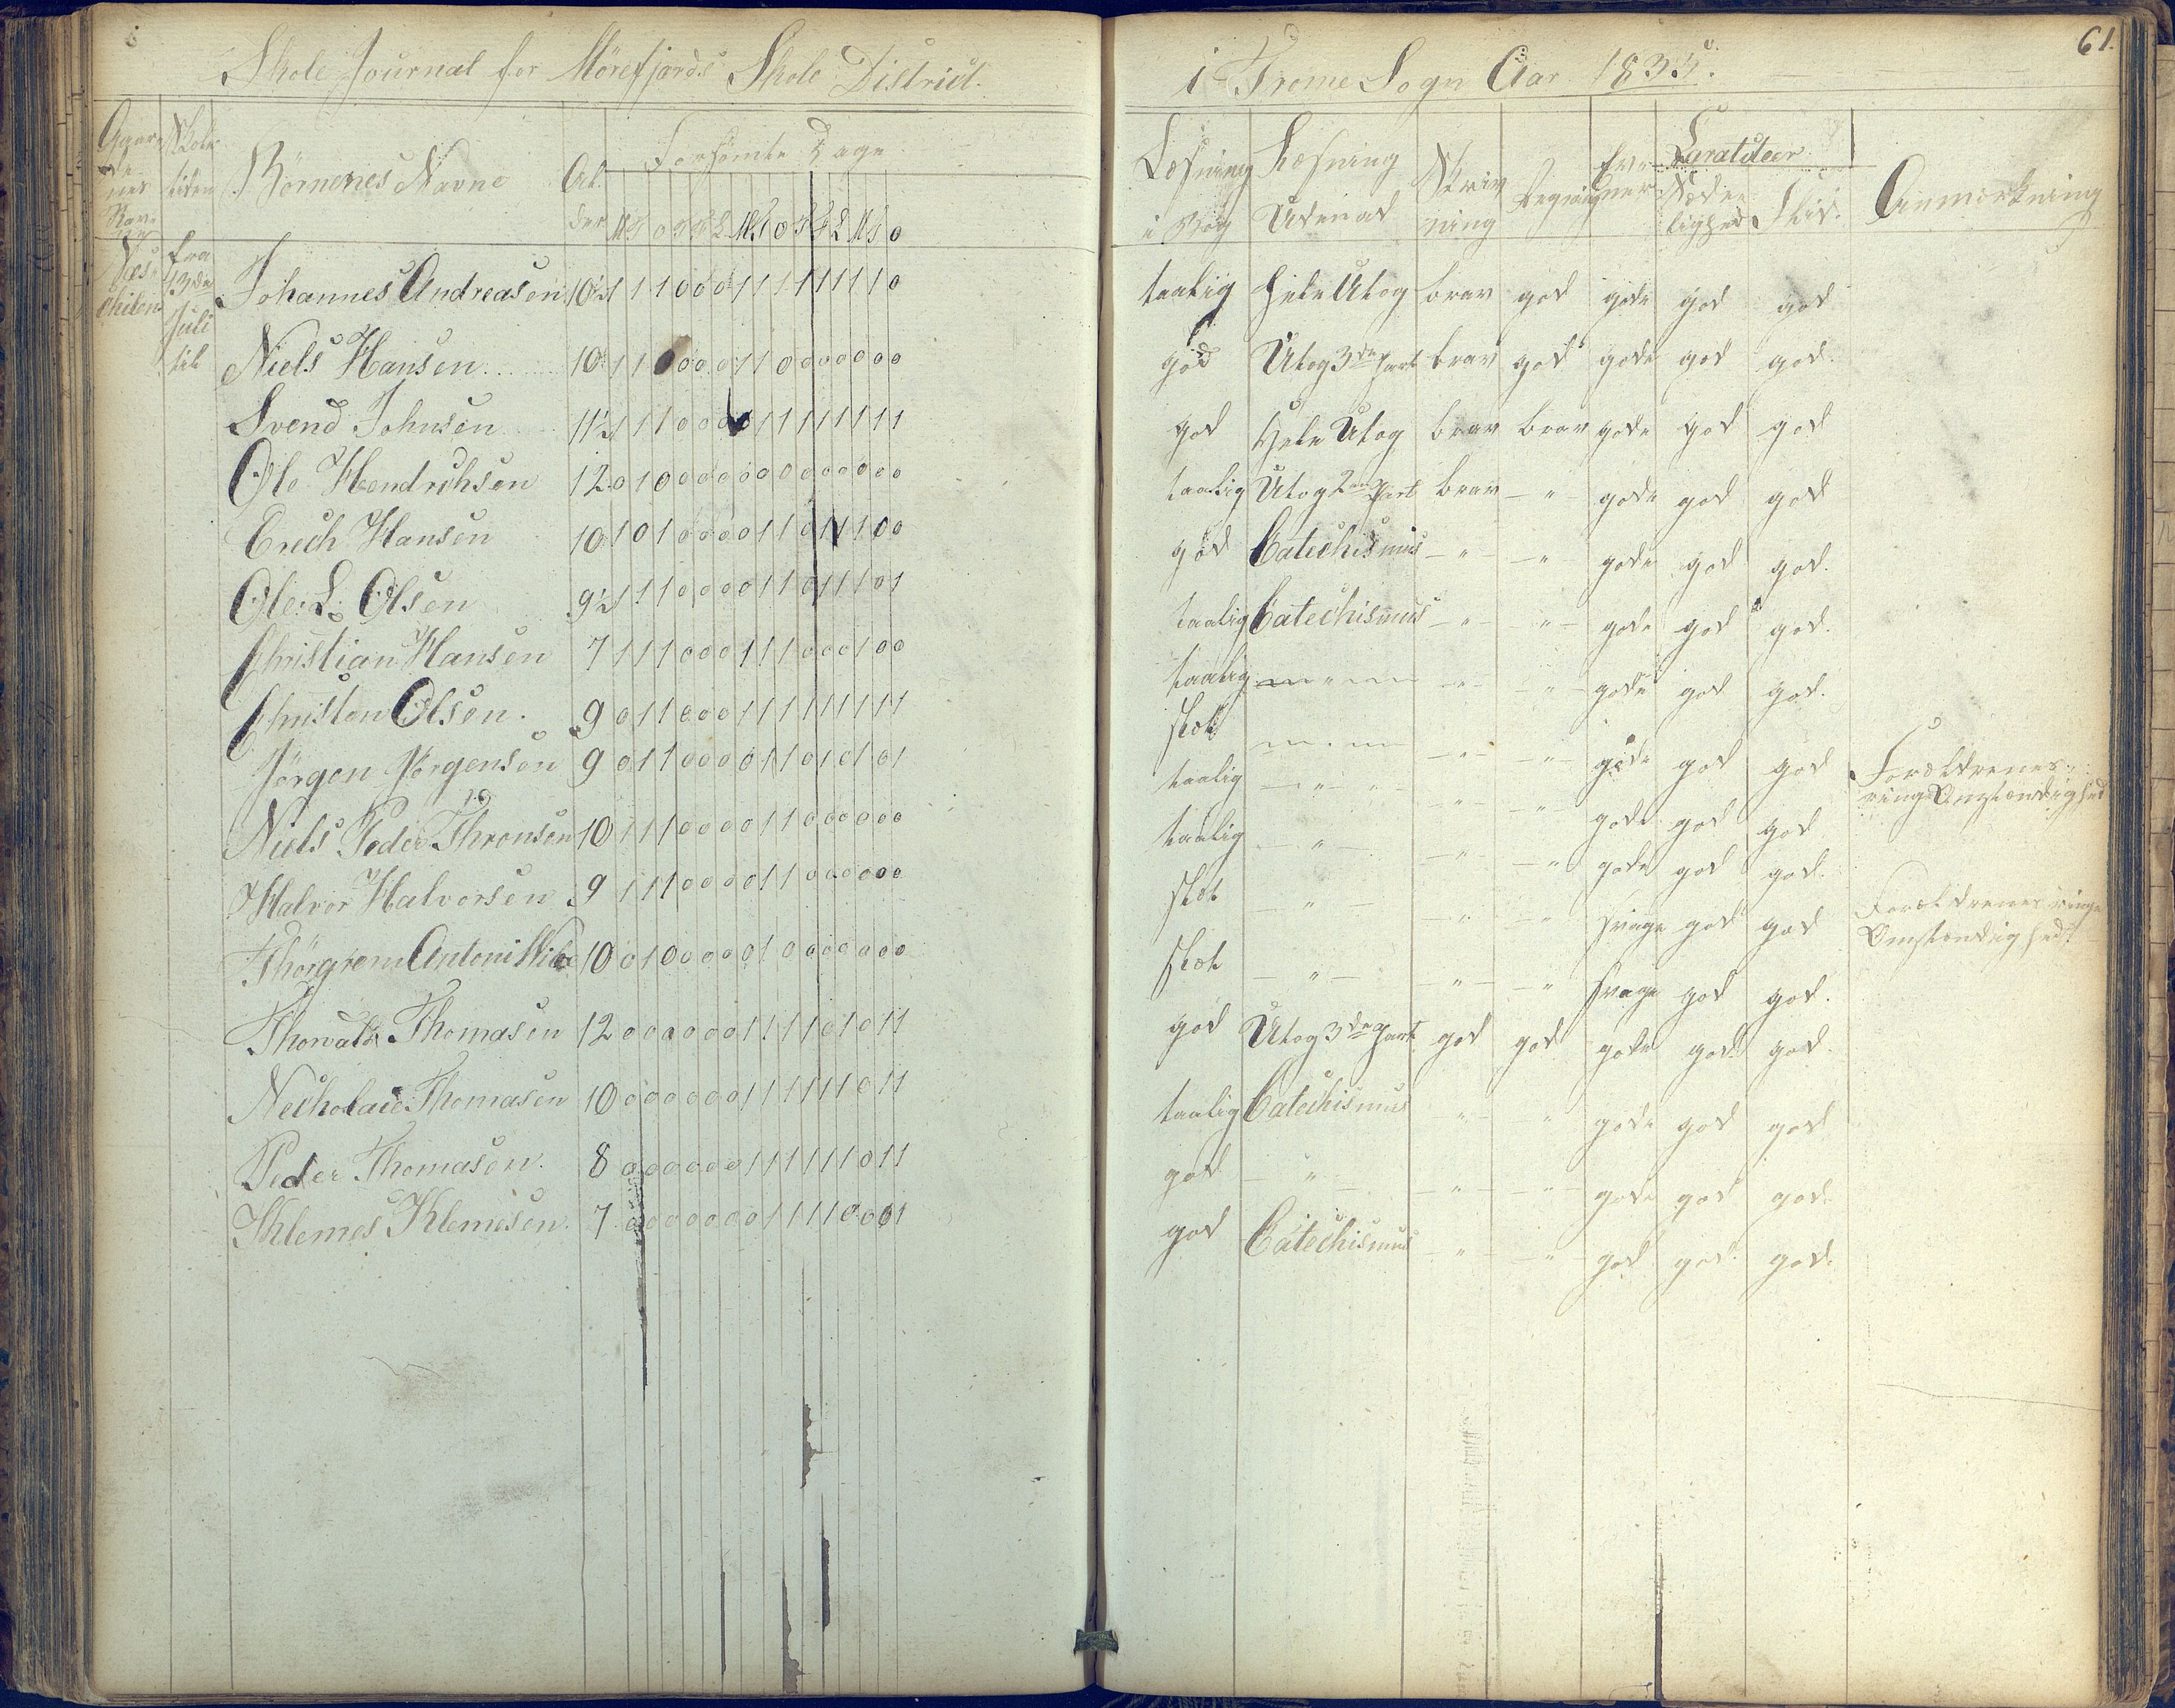 61.
Skole Journal for Mörefjærds Skole District i Trome Sogn Aar 1835.
Gaardenes Navne Skoletiden Börnenes Navne Alder Forsömte Dage Læsning i Bog Læsning Udenad Skrivning Regning Evner Caracteer Sædelighed Flid. Anmærkning
M T O T F L M T O T F L M T O
Næs Chilen fra 13de Juli til
Johannes Andreasen 10½ 1 1 1 0 0 0 1 1 1 1 1 1 1 1 0 taalig Hele Utog brav god gode god god
Niels Hansen 10 1 1 0 0 0 0 1 1 0 0 0 0 0 0 0 god Utog 3de Part brav god gode god god.
Svend Johnsen 11½ 1 1 1 0 0 0 1 1 1 1 1 1 1 1 god Hele Utog brav brav gode god god
Ole Hendrichsen 12 0 1 0 0 0 0 0 0 0 0 0 0 0 0 0 taalig Utog 2den Part brav – " gode god god
Erech Hansen 10 1 0 1 0 0 0 0 1 1 0 1 1 1 0 0 god Catechismus – " – – " – gode god god.
Ole L. Olsen 9½ 1 1 1 0 0 0 0 1 1 0 1 1 1 0 1 taalig Catechismus – " – – " – gode god god.
Christian Hansen 7 1 1 1 0 0 0 1 1 1 0 0 0 1 0 0 taalig – " – – " – – " – gode god god.
Christen Olsen. 9 0 1 1 0 0 0 1 1 1 1 1 1 1 1 1 slet – " – – " – – " – gode god god
Jörgen Jörgensen 9 0 1 1 0 0 0 0 1 1 0 1 0 1 0 1 taalig – " – – " – – " – gode god god
Forældrenes
ringe Omstændighed
Niels Peder Thronsen 10 1 1 1 0 0 0 0 1 1 0 0 0 0 0 0 taalig – " – – " – – " gode god god.
Halvor Halvorsen 9 1 1 1 0 0 0 0 1 1 0 0 0 0 0 0 slet – " – – " – – " svage god god
Forældrenes ringe
Omstændighed.
Antoni 10 0 1 0 0 0 0 0 1 0 0 0 0 0 0 0 slet – " – – " – – " svage god god.
Thorvald Thomasen 12 0 0 0 0 0 0 1 1 1 1 0 1 0 1 1 god Utog 3de Part god god gode god god.
Necholaie Thomasen 10 0 0 0 0 0 0 1 1 1 1 1 1 0 1 1 taalig Catechismus – " – – " gode god god
Peder Thomasen. 8 0 0 0 0 0 0 1 1 1 1 1 1 0 1 1 god – " – – " – – " – gode god god.
Klemes Klemesen. 7 0 0 0 0 0 0 0 1 1 1 1 0 0 0 1 god Catechismus – " – – " – god god god.